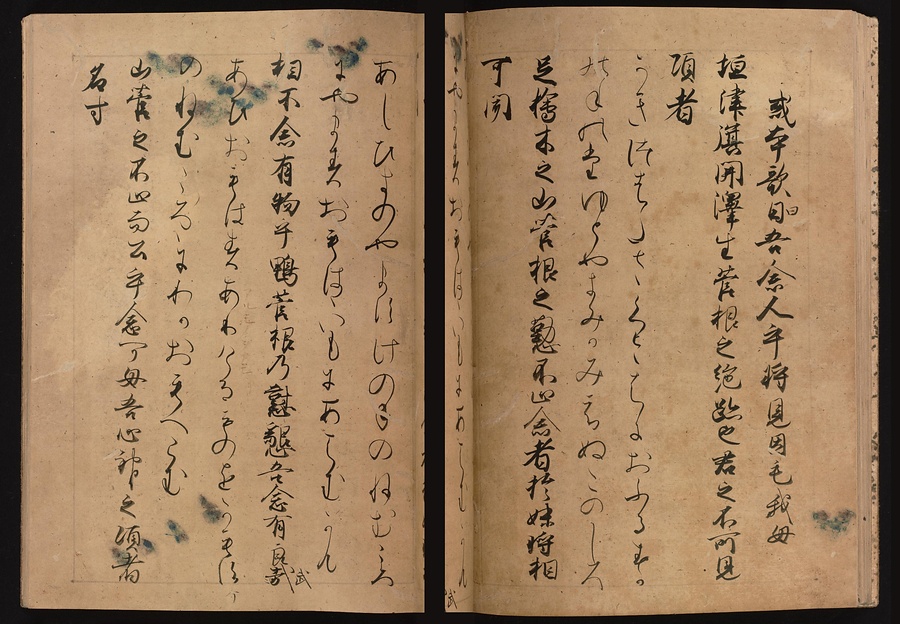 或本歌曰吾念人乎将見因毛我母
垣津旗開澤生菅根之絶跡也君之不所見
頃者
かきつはたさくさはにおふるすか
のねのたゆとやきみかみえぬこのころ
足檜木之山菅根之懃不止念者於妹将相
可聞
あしひきのやますけのねのねむころ
にやますおもはゝいもにあはむかも
相不念有物乎鴨菅根乃懃懇吾念有良武
あひおもはすあるものをかもすけ
のねむころにわかおもへらむ
山菅之不止而公乎念可母吾心神之頃者
名寸